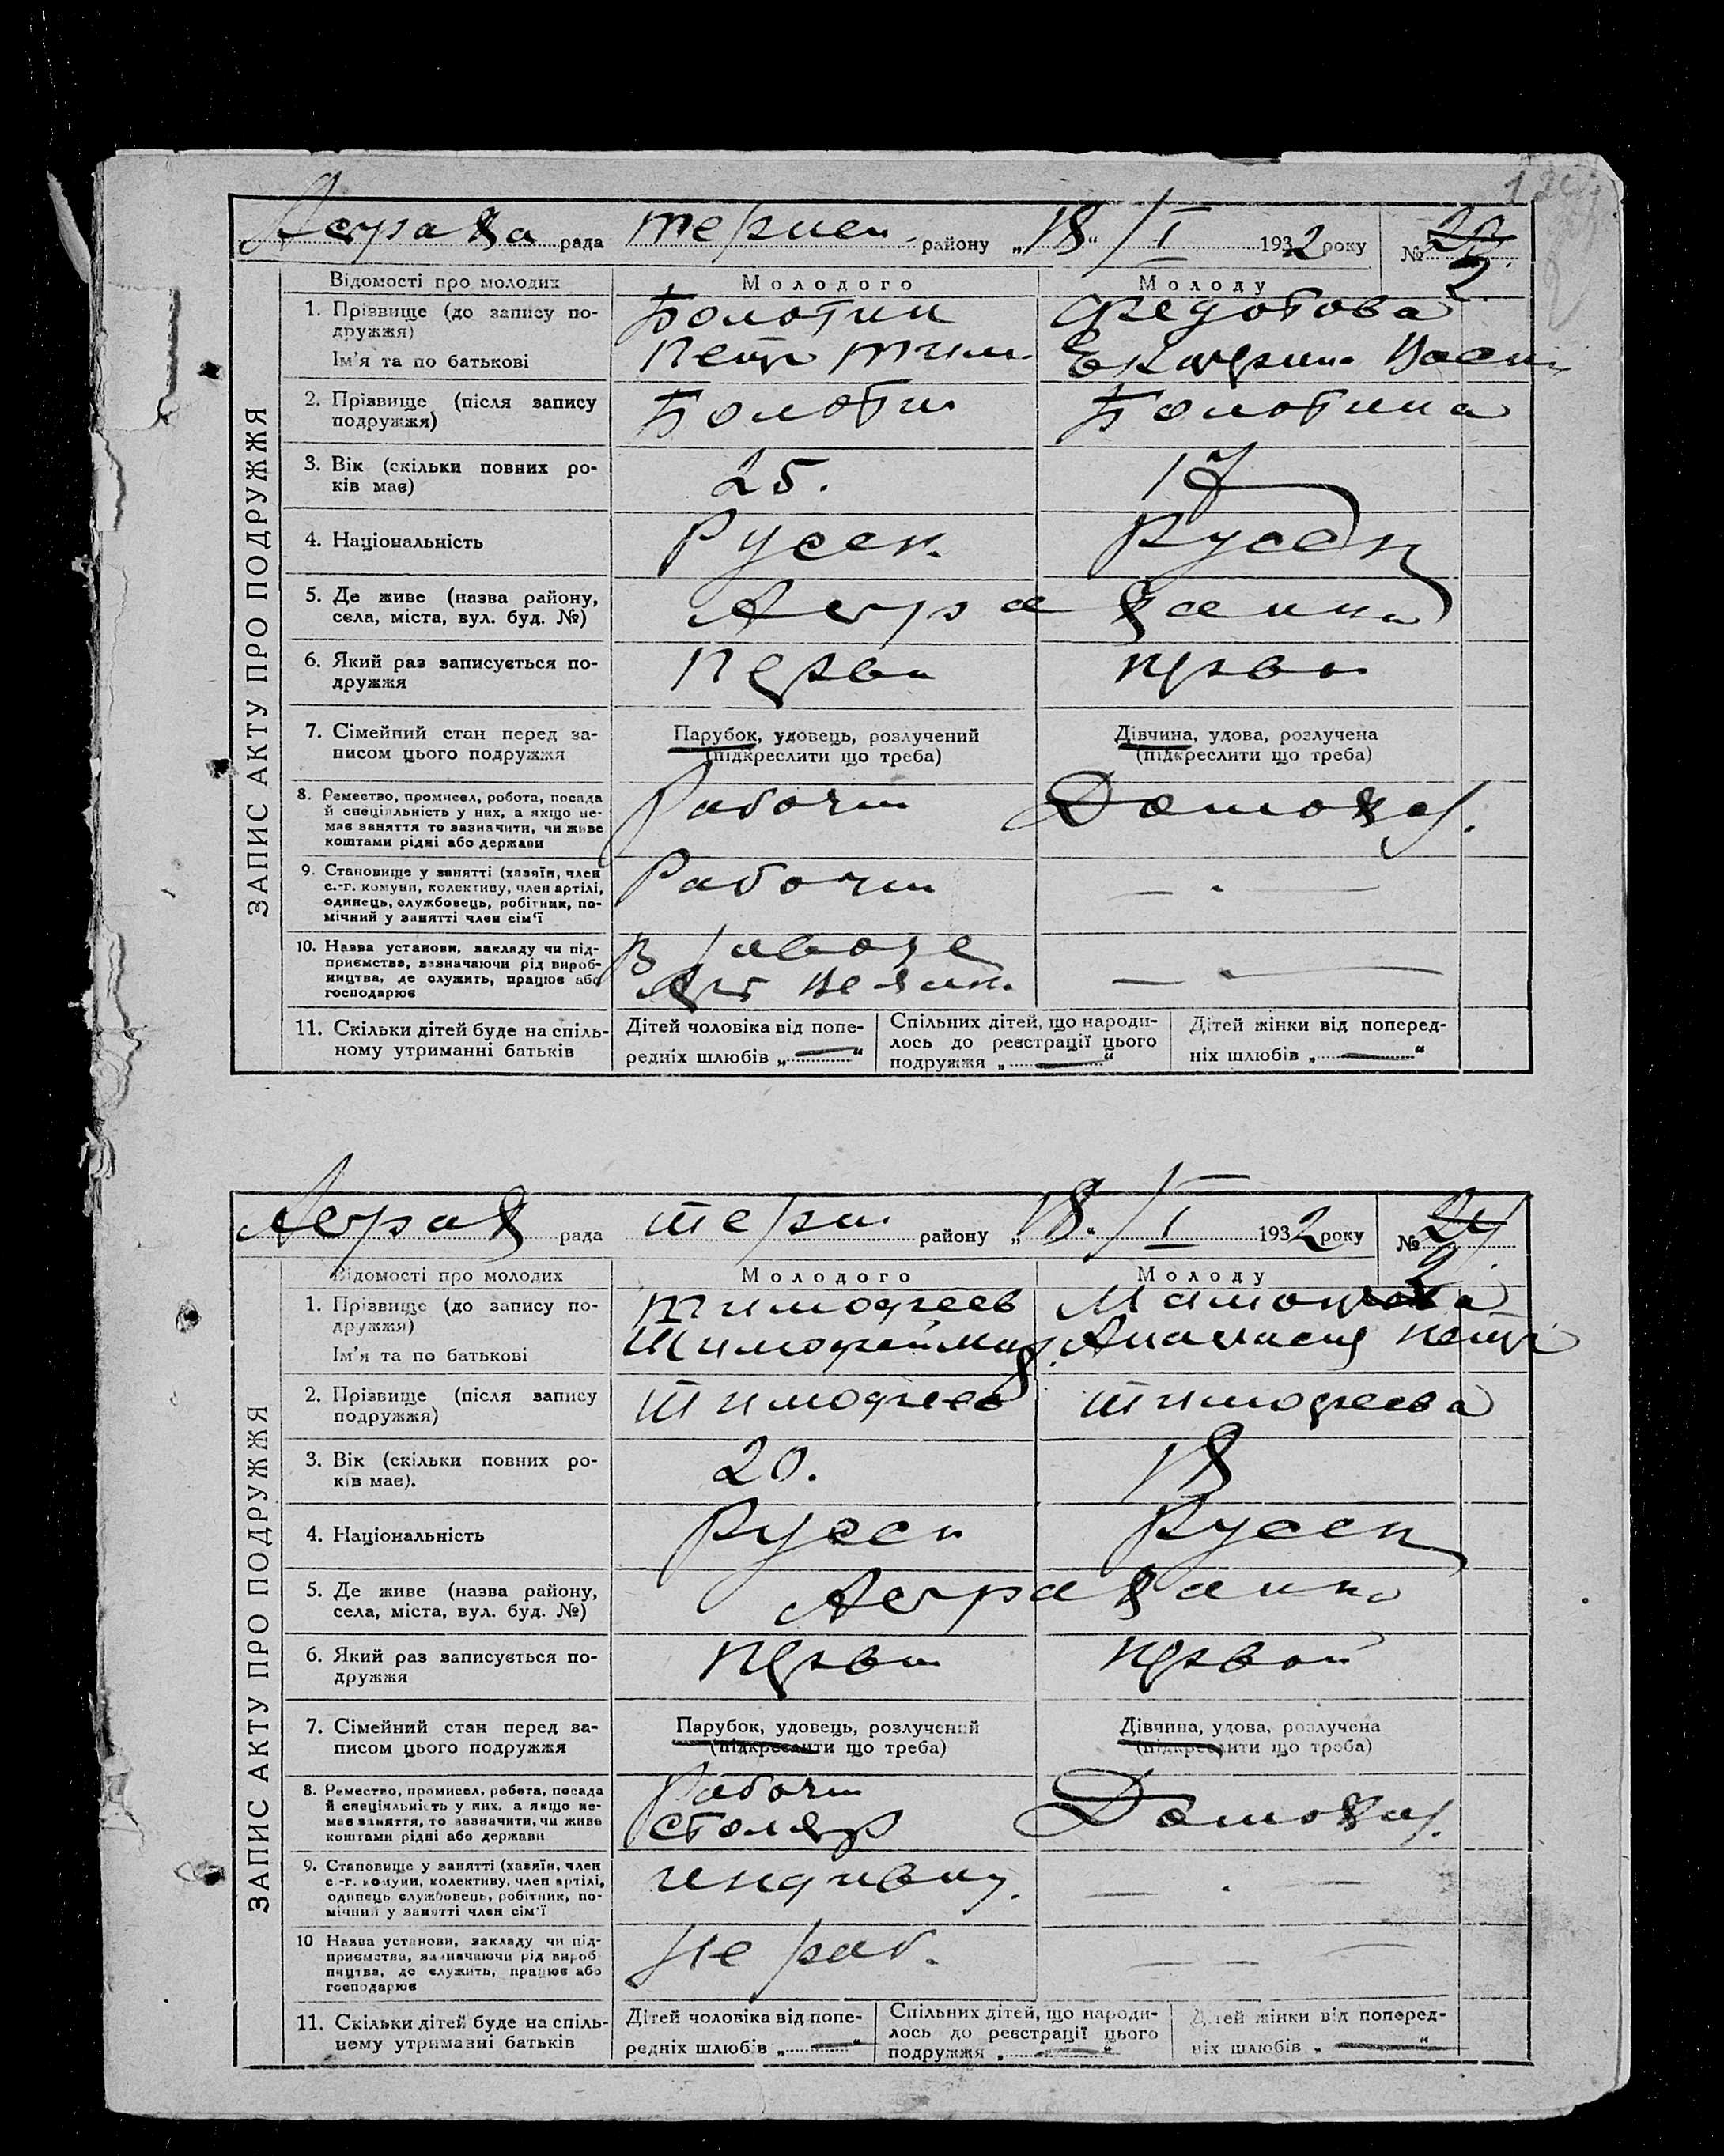 рада района „18“ / I 1932 року № 20
2
ЗАПИС АКТУ ПРО ПОДРУЖЖЯ
Відомості про молодих Молодого Молоду
1. Прізвище (до запису по-
дружжя) Болотин Федотова
Ім'я та по батькові Петр Тим.
2. Прізвище (після запису
подружжя) Болотин Болотина
3. Вік (скільки повних ро-
ків має) 25. 17
4. Національність Русск. Русск
5. Де живе (назва району,
села, міста, вул. буд. №)
6. Який раз записується по-
дружжя
7. Сімейний стан перед за-
писом цього подружжя
Парубок, удовець, розлучений
(підкреслити що треба)
Дівчина, удова, розлучена
(підкреслити що треба)
8. Ремество, промисел, робота, посада
й спеціяльність у них, а якщо не-
має заняття то зазначити, чи живе
коштами рідні або держави
Рабочий Домохоз.
9. Становище у занятті (хазяїн, член
с.-г. комуни, колективу, член артілі,
одинець, службовець, робітник, по-
мічний у занятті член сім'ї
Рабочий — —
10. Назва установи, закладу чи під-
приємства, зазначаючи рід вироб-
ництва, де служить, працює або
господарює
— —
11. Скільки дітей буде на спіль-
ному утриманні батьків
Дітей чоловіка від попе-
редніх шлюбів „ — “
Спільних дітей, що народи-
лось до реєстрації цього
подружжя „ — “
Дітей жінки від поперед-
ніх шлюбів „ — “
рада району „18“ / I 1932 року №
ЗАПИС АКТУ ПРО ПОДРУЖЖЯ
Відомості про молодих Молодого Молоду
1. Прізвище (до запису по-
дружжя) Тимофеев
Ім'я та по батькові
2. Прізвище (після запису
подружжя) Тимофеев Тимофеева
3. Вік (скільки повних ро-
ків має). 20. 18
4. Національність Русск Русск
5. Де живе (назва району,
села, міста, вул. буд. №)
6. Який раз записується по-
дружжя Первой
7. Сімейний стан перед за-
писом цього подружжя
Парубок, удовець, розлучений
(підкреслити що треба)
Дівчина, удова, розлучена
(підкреслити що треба)
8. Ремество, промисел, робота, посада
й спеціяльність у них, а якщо не-
має заняття, то зазначити, чи живе
коштами рідні або держави
Рабочий
столяр Домохоз.
9. Становище у занятті (хазяїн, член
с.-г. комуни, колективу, член артілі,
одинець службовець, робітник, по-
мічний у занятті член сім'ї
— —
10 Назва установи, закладу чи під-
приємства, зазначаючи рід вироб-
ництва, де служить, працює або
господарює
Не раб. — —
11. Скільки дітей буде на спіль-
ному утриманні батьків
Дітей чоловіка від попе-
редніх шлюбів „ — “
Спільних дітей, що народи-
лось до реєстрації цього
подружжя „ — “
Дітей жінки від поперед-
ніх шлюбів „ — “